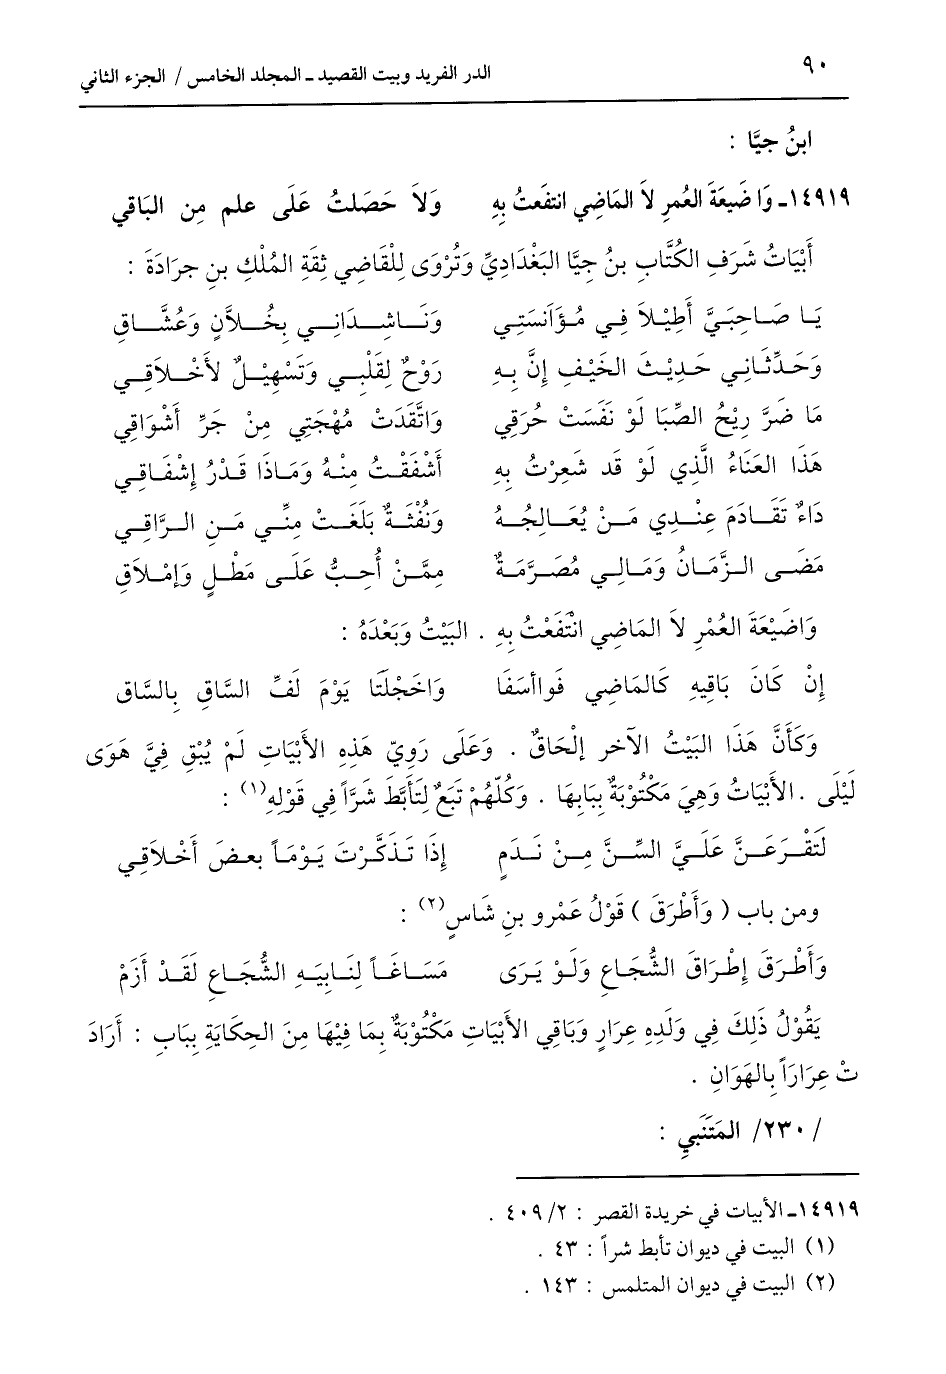 ٩٠
الدر الفريد وبيت القصيد ـ المجلد الخامس / الجزء الثاني
ابنُ جيَّا :
١٤٩١٩ـ وَا ضَيعَةَ العُمرِ لاَ المَاضِي انتفَعتُ بِهِ وَلاَ حَصَلتُ عَلَى علم مِن البَاقي
أَبْيَاتُ شَرَفِ الكُتَّابِ بنُ جيَّا البَغْدَادِيِّ وَتُرْوَى لِلْقَاضِي ثِقَةِ المُلْكِ بنِ جرَادَةَ :
يَـا صَـاحِبَيَّ أَطِيْلاَ فِـي مُـؤَآنَستِي وَنَـاشِـدَانِـي بِخُـلاَّنٍ وَعُشَّـاقِ
وَحَدِّثَـانِي حَدِيْـثَ الخَيْـفِ إِنَّ بِـهِ رَوْحٌ لِقَلْبِـي وَتَسْهِيْـلٌ لأَخْـلاَقِـي
مَا ضَرَّ رِيْحُ الصِّبَا لَوْ نَفَسَتْ حُرَقِي وَاتَّقَدَتْ مُهْجَتِي مِنْ جَرِّ أَشْوَاقِي
هَذَا العَنَاءُ الَّذِي لَوْ قَد شَعِرْتُ بِهِ أَشْفَقْـتُ مِنْـهُ وَمَـاذَا قَـدْرُ إِشْفَـاقِي
دَاءٌ تَقَـادَمَ عِنْـدِي مَـنْ يُعَـالِجُـهُ وَنُفْثَـةٌ بَلَغَـتْ مِنِّـي مَـنِ الـرَّاقِـي
مَضَـى الـزَّمَـانُ وَمَـالِـي مُصَـرَّمَـةٌ مِمَّـنْ أُحِـبُّ عَلَـى مَطْـلٍ وَإِمْـلاَقِ
وَاضَيْعَةَ العُمْرِ لاَ المَاضِي انْتَفَعْتُ بِهِ . البَيْتُ وَبَعْدَهُ :
إِنْ كَانَ بَاقِيهِ كَالمَاضِي فَواأسَفَا وَاخَجْلَتَا يَوْمَ لَفِّ السَّاقِ بِالسَّاقِ
وَكَأَنَّ هَذَا البَيْتُ الآخرِ إِلْحَاقٌ . وَعَلَى رَوِيِّ هَذِهِ الأَبْيَاتِ لَمْ يُبْقِ فِيَّ هَوَى
لَيْلَى . الأَبْيَاتُ وَهِيَ مَكْتُوْبَةٌ بِبَابِهَا . وَكُلُّهُمْ تَبَعٌ لِتَأَبَّطَ شَرَّاً فِي قَولِهِ(١) :
لَتَقْـرَعَـنَّ عَلَـيَّ السِّـنَّ مِـنْ نَـدَمٍ إِذَا تَـذَكَّـرْتَ يَـوْمَـاً بعـضَ أَخْـلاَقِي
ومن باب ( وَأَطْرَقَ ) قَوْلُ عَمْرو بنِ شَاسٍ(٢) :
وَأَطْـرَقَ إِطْـرَاقَ الشُّجَـاعِ وَلَـوْ يَـرَى مَسَـاغَـاً لِنَـابِيَـهِ الشُّجَـاعِ لَقَـدْ أَزَمْ
يَقُوْلُ ذَلِكَ فِي وَلَدِهِ عِرَارٍ وَبَاقِي الأَبْيَاتِ مَكْتُوْبَةٌ بِمَا فِيْهَا مِنَ الحِكَايَةِ بِبَابِ : أَرَادَ
تْ عِرَارَاً بِالهَوَانِ .
/ ٢٣٠/ المَتَنَبي :
١٤٩١٩ـ الأبيات في خريدة القصر : ٢/ ٤٠٩ .
(١) البيت في ديوان تأبط شراً : ٤٣ .
(٢) البيت في ديوان المتلمس : ١٤٣ .